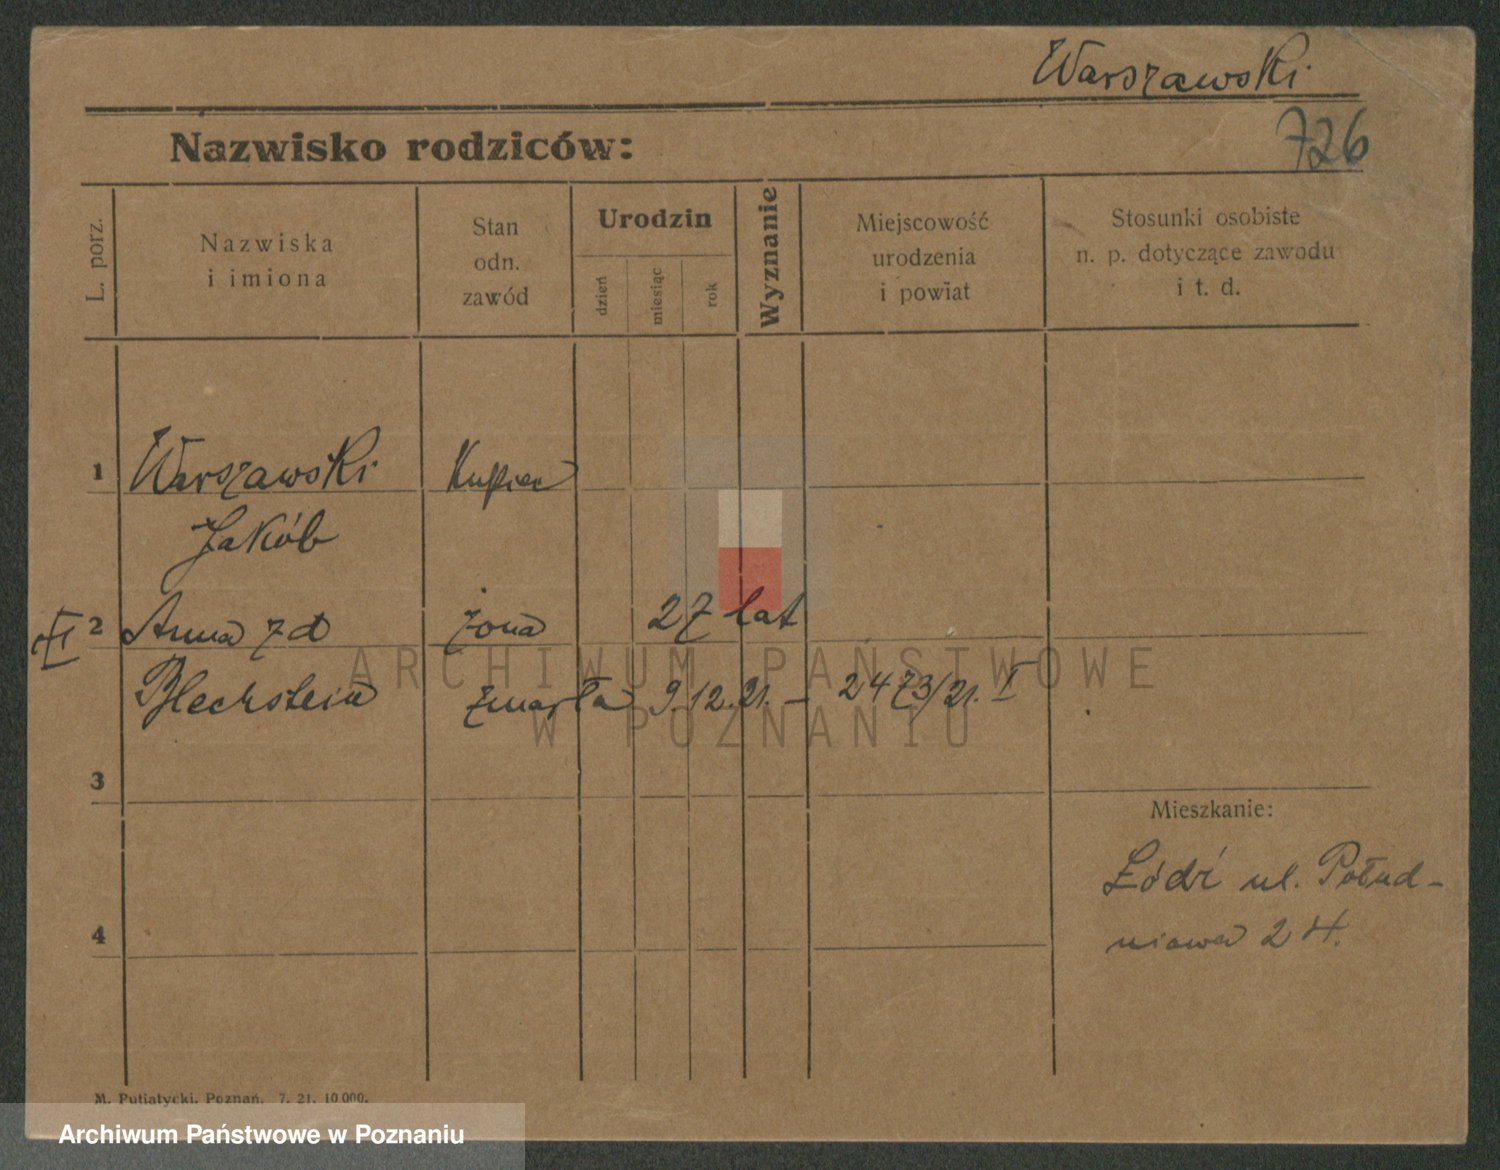 Warszawski
726
Nazwisko rodziców:
L. porz.
Nazwiska
i imiona
Stan
odn.
zawód
Urodzin
dzień
miesiąc
rok
Wyznanie
Miejscowość
urodzenia
i powiat
Stosunki osobiste
n. p. dotyczące zawodu
i t. d.
1 Warszawski Kupiec
Jakób
2 Anna z d żona 27 lat
Blechstein zmarła 9.12.21. – 2473/21. I
3
Mieszkanie:
Łódź ul. Połud-
niowa 24.
4
M. Putiatycki, Poznań, 7. 21. 10 000.
ARCHIWUM PAŃSTWOWE
W POZNANIU
Archiwum Państwowe w Poznaniu